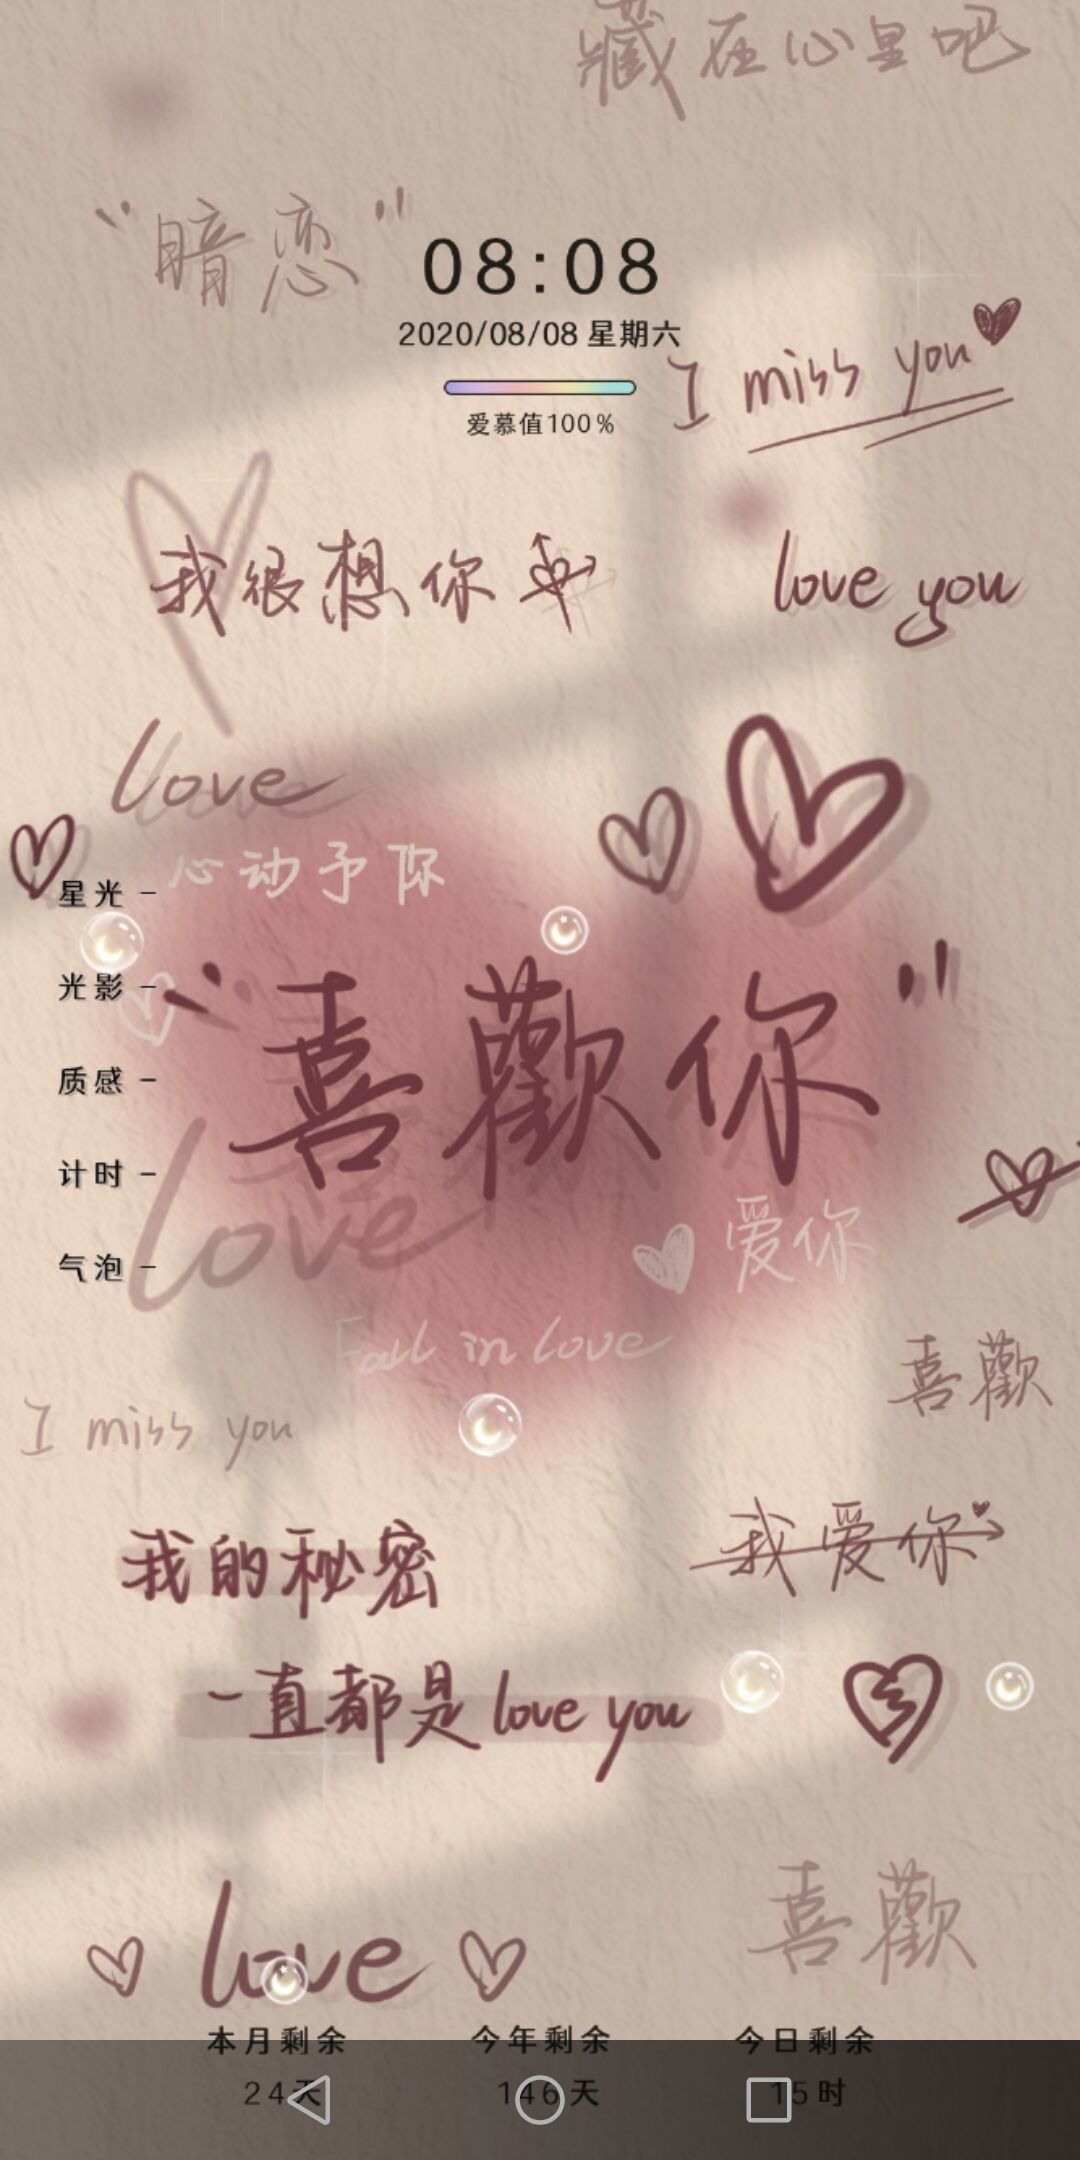 藏在心里吧
“暗恋”
08:08
2020/08/08 星期六
I miss you
爱慕值100%
我很想你
love you
love
心动予你
星光
光影
“喜歡你”
质感
计时
love
爱你
气泡
Fall in love
喜歡
I miss you
我爱你
我的秘密
一直都是love you
喜歡
love
本月剩余 今年剩余 今日剩余
24天 146天 15时